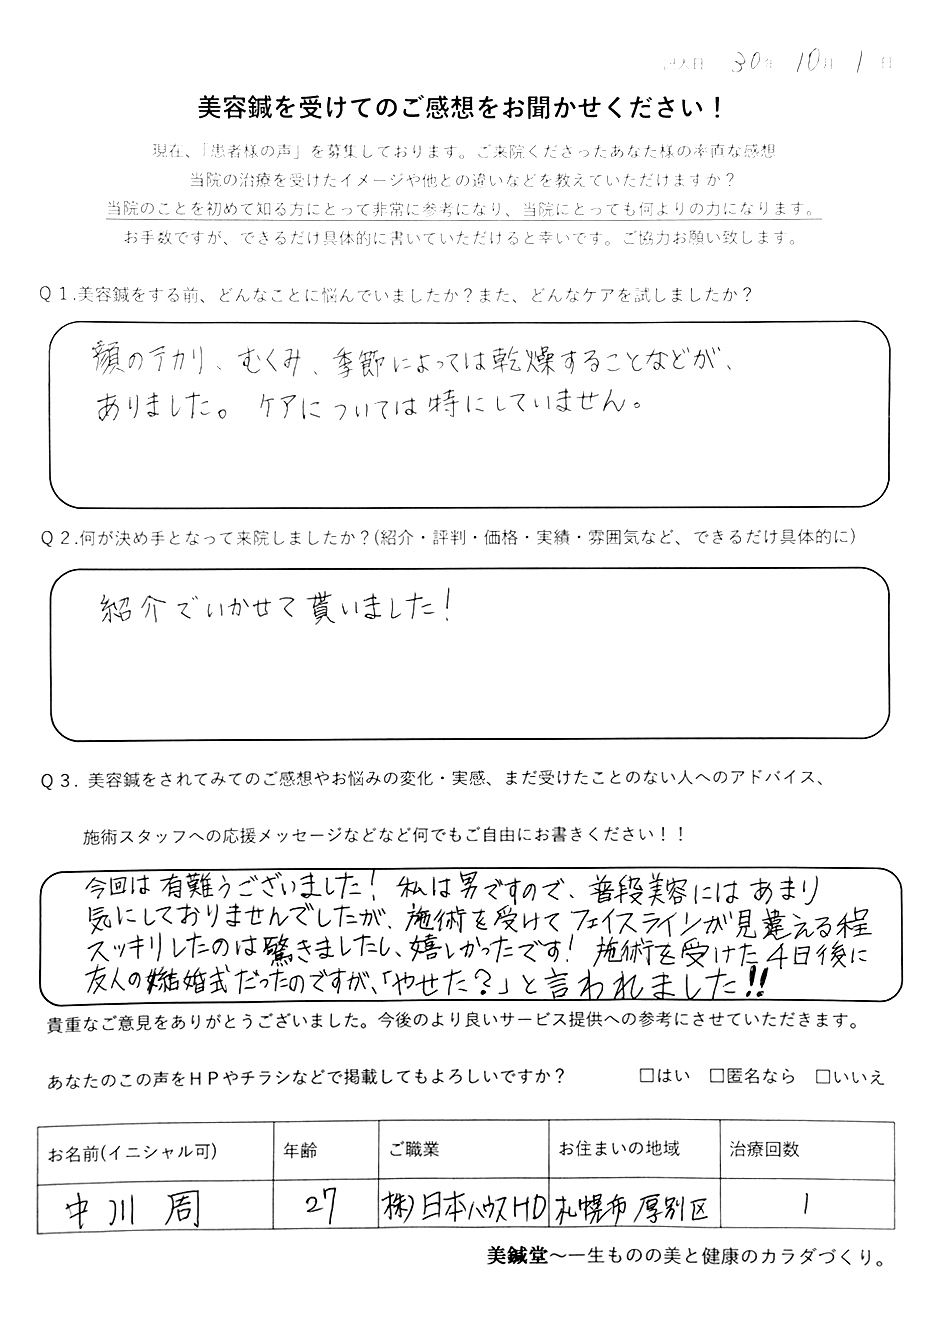 記入日 30年 10月 1日
美容鍼を受けてのご感想をお聞かせください！
現在、「患者様の声」を募集しております。ご来院くださったあなた様の率直な感想
当院の治療を受けたイメージや他との違いなどを教えていただけますか？
当院のことを初めて知る方にとって非常に参考になり、当院にとっても何よりの力になります。
お手数ですが、できるだけ具体的に書いていただけると幸いです。ご協力お願い致します。
Ｑ１.美容鍼をする前、どんなことに悩んでいましたか？また、どんなケアを試しましたか？
顔のテカリ、むくみ、季節によっては乾燥することなどが、
ありました。ケアについては特にしていません。
Ｑ２.何が決め手となって来院しましたか？(紹介・評判・価格・実績・雰囲気など、できるだけ具体的に)
紹介でいかせて貰いました！
Ｑ３．美容鍼をされてみてのご感想やお悩みの変化・実感、まだ受けたことのない人へのアドバイス、
施術スタッフへの応援メッセージなどなど何でもご自由にお書きください！！
今回は有難うございました！私は男ですので、普段美容にはあまり
気にしておりませんでしたが、施術を受けてフェイスラインが見違える程
スッキリしたのは驚きましたし、嬉しかったです！施術を受けた4日後に
友人の結婚式だったのですが、「やせた？」と言われました!!
貴重なご意見をありがとうございました。今後のより良いサービス提供への参考にさせていただきます。
あなたのこの声をＨＰやチラシなどで掲載してもよろしいですか？ □はい □匿名なら □いいえ
お名前(イニシャル可) 年齢 ご職業 お住まいの地域 治療回数
中川 周 27 (株)日本ハウスHD 札幌市厚別区 1
美鍼堂～一生ものの美と健康のカラダづくり。